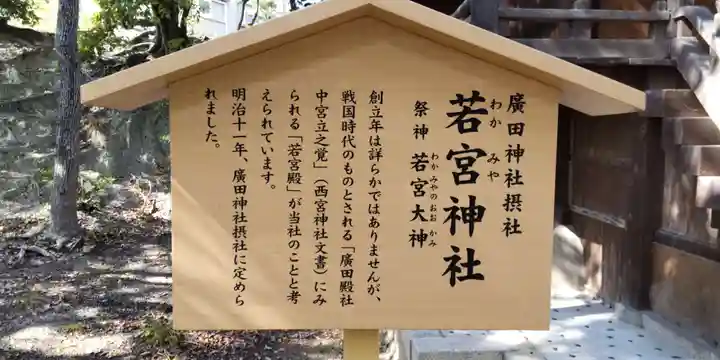 廣田神社摂社
若宮神社
わか みや
祭神 若宮大神
わか みやのおお かみ
創立年は詳らかではありませんが、
戦国時代のものとされる「廣田殿社
中宮立之覚」（西宮神社文書）にみ
られる「若宮殿」が当社のことと考
えられています。
明治十一年、廣田神社摂社に定めら
れました。